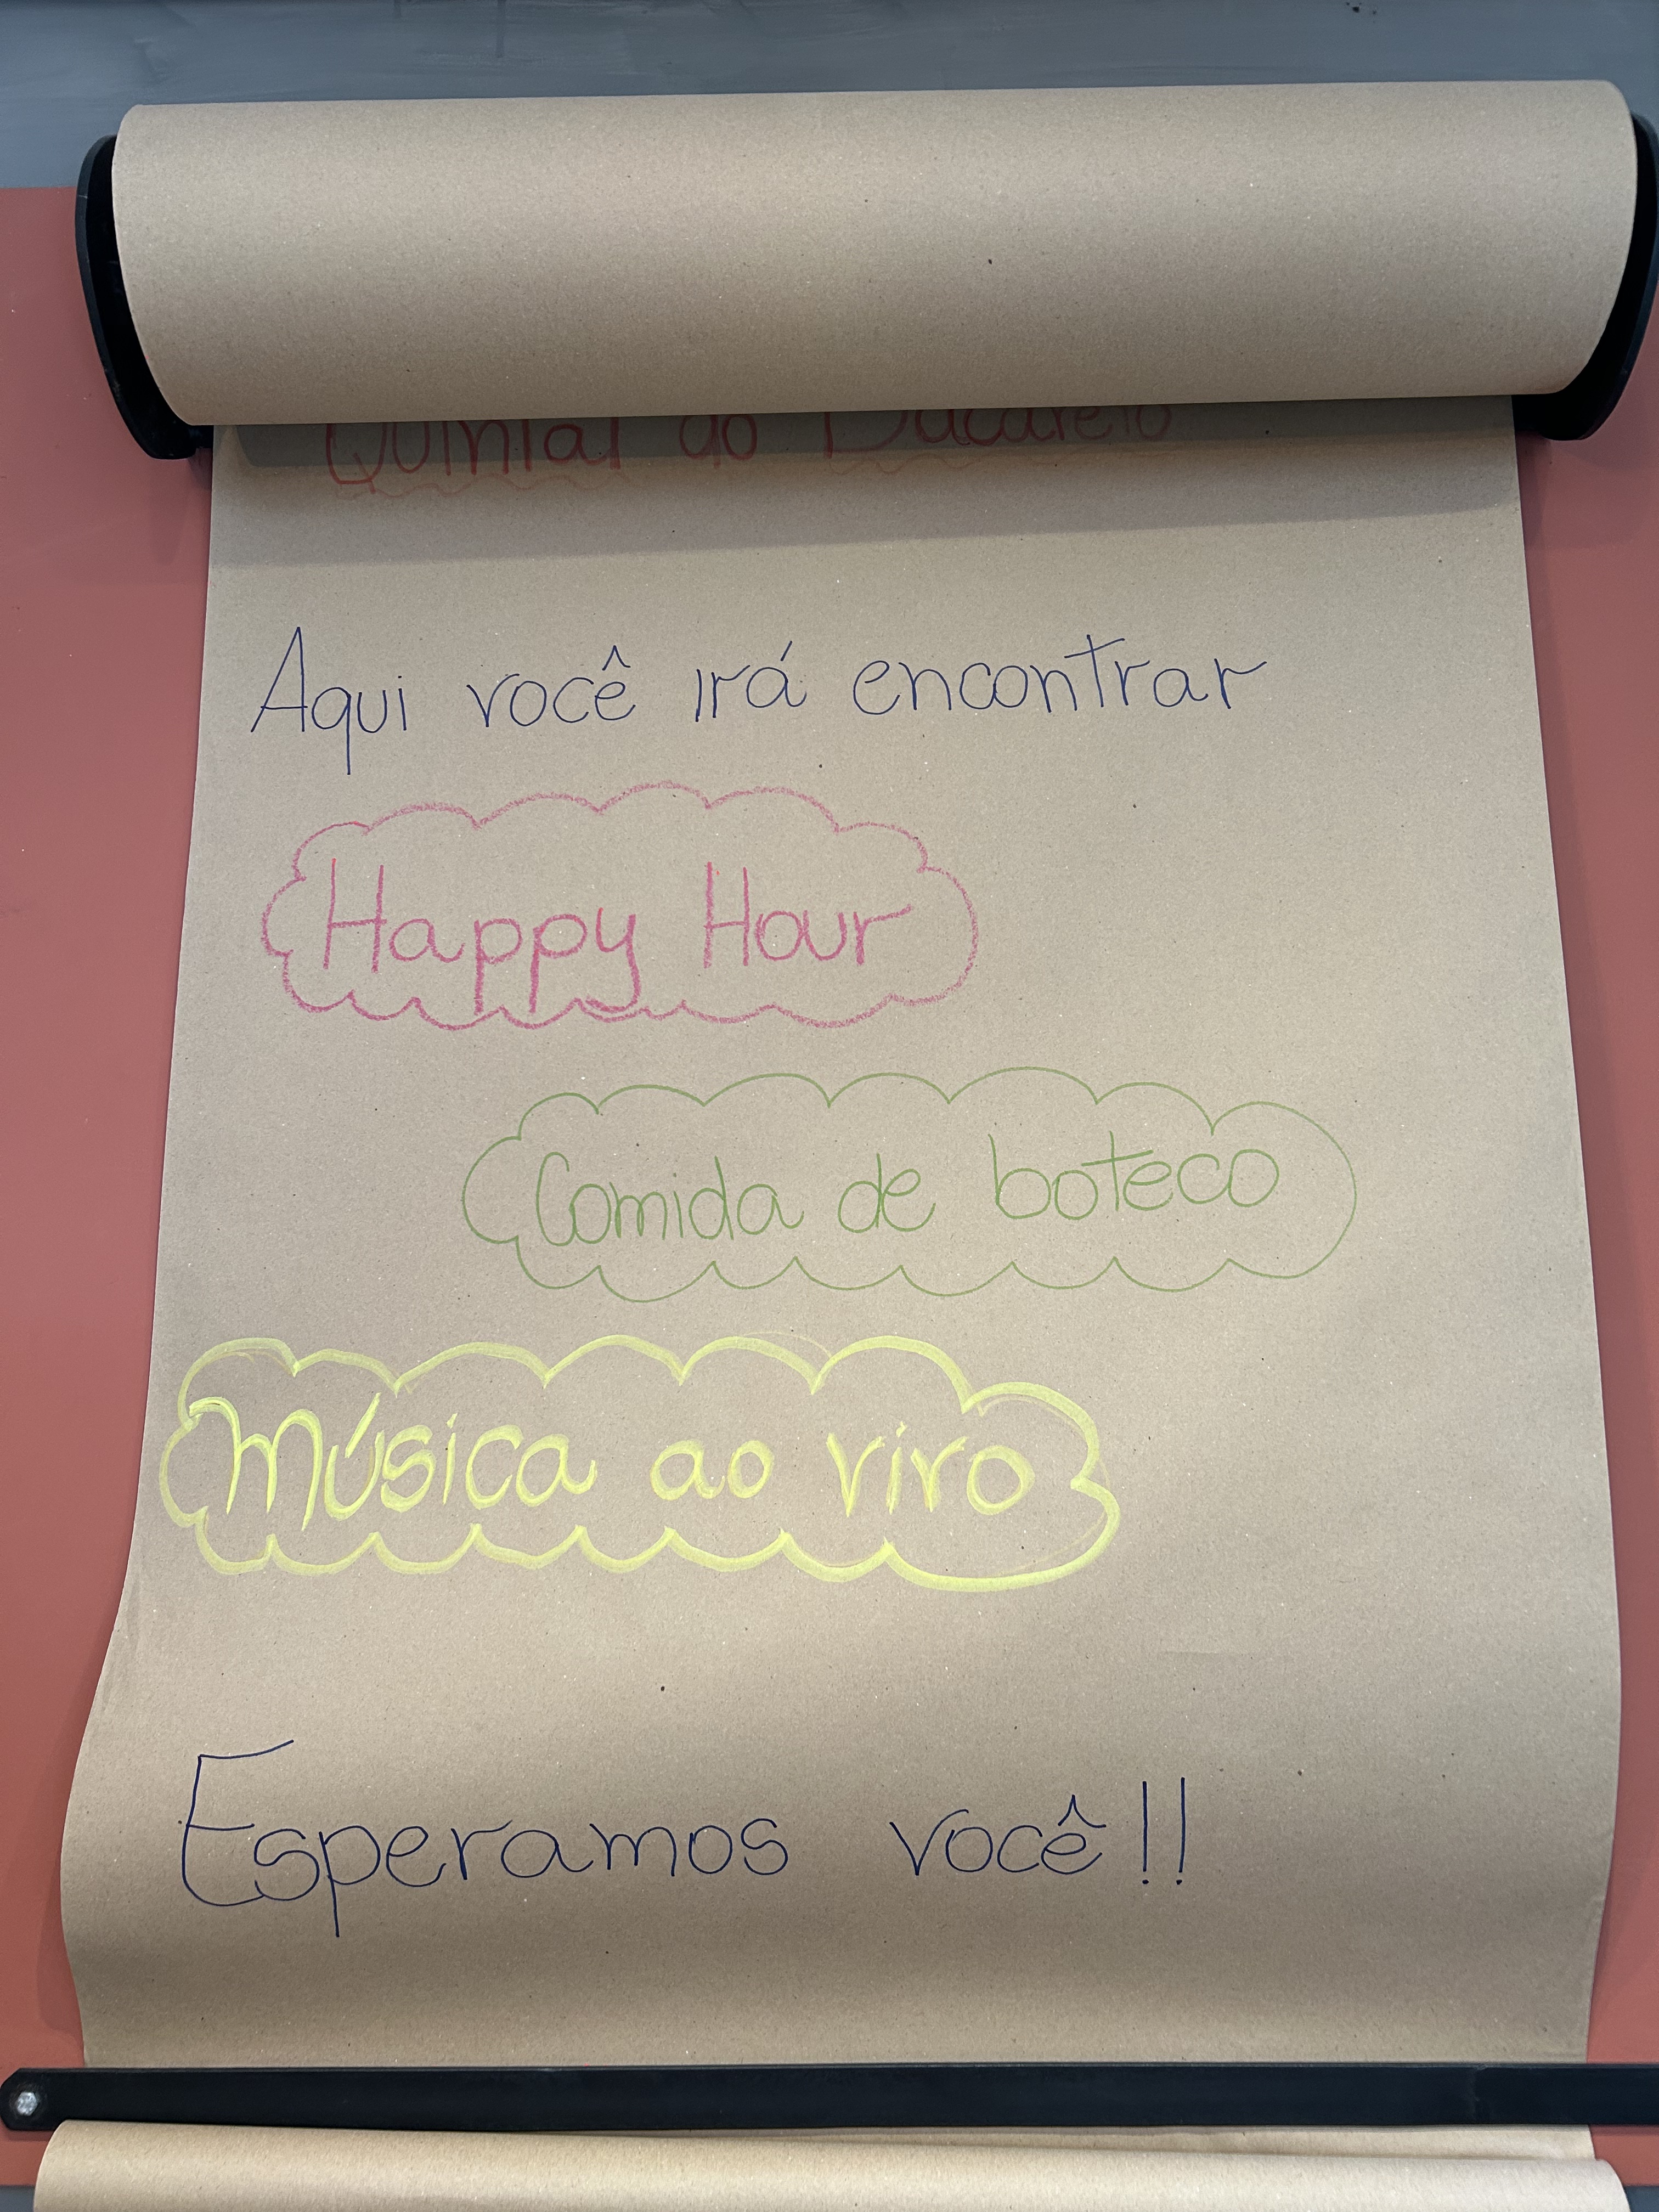 Quintal do
Aqui você irá encontrar
Happy Hour
Comida de boteco
Música ao vivo
Esperamos você!!